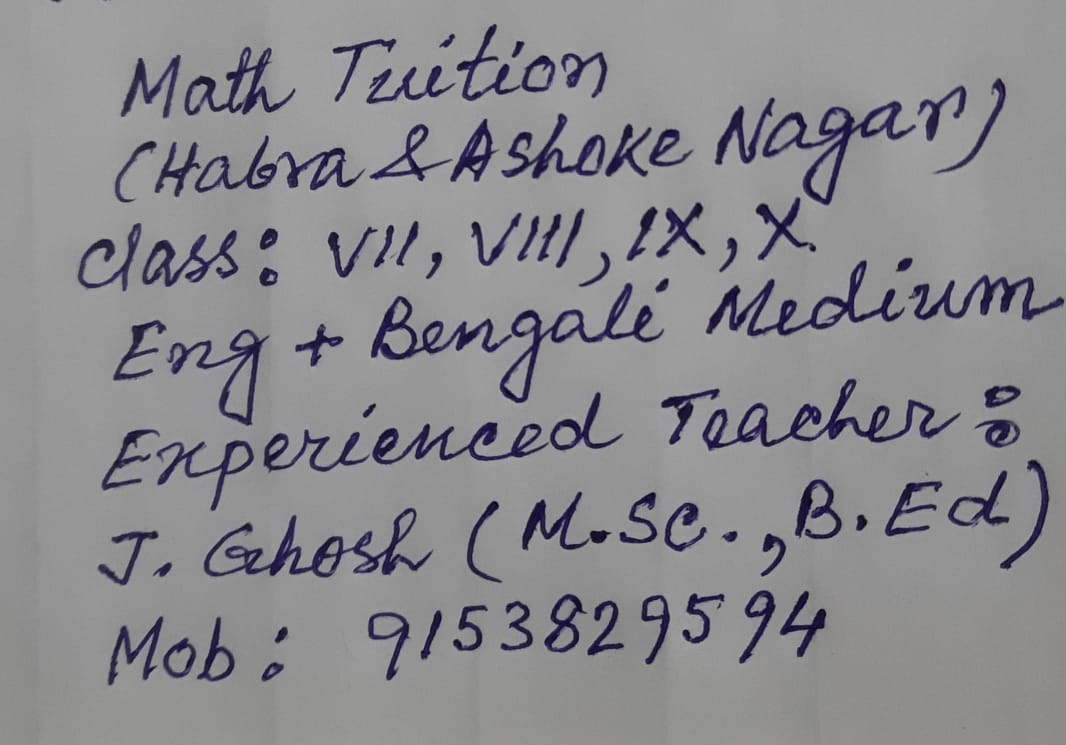 Math Tuition
(Habra & Ashoke Nagar)
Class: VII, VIII, IX, X.
Eng + Bengali Medium
Experienced Teacher:
J. Ghosh (M.Sc., B.Ed)
Mob: 9153829594